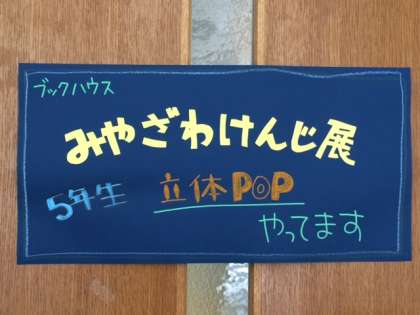 ブックハウス
みやざわけんじ展
5年生 立体POP
やってます